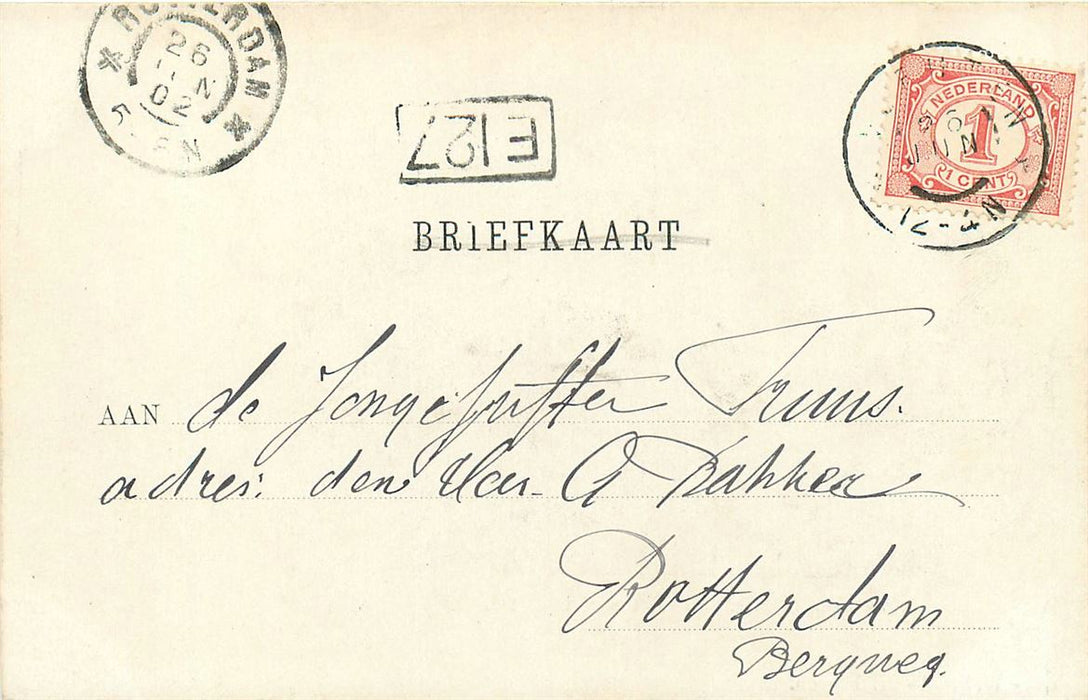 ROTTERDAM
26 JUN 02
5 8N
E127
NEDERLAND
1
1 CENT
6 JUN
BRIEFKAART
AAN de Jongejuffter Truus.
adres: den Heer G Bakker
Rotterdam
Bergweg.